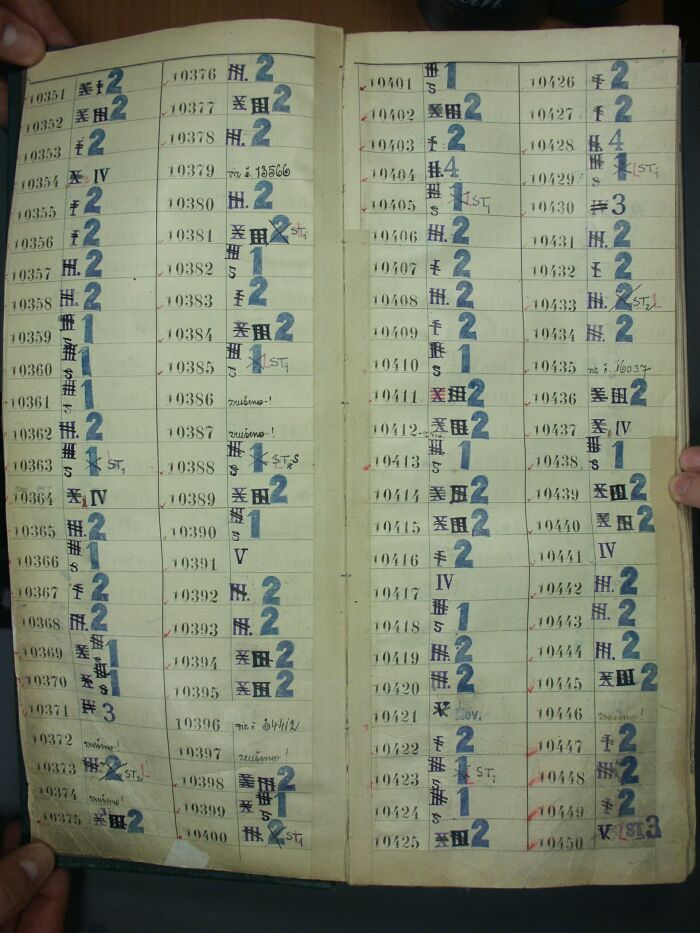 10351 X I 2
10352 X III 2
10353 I 2
10354 X IV
10355 I 2
10356 I 2
10357 III. 2
10358 III. 2
10359 III S 1
10360 III S 1
10361 III S 1
10362 III. 2
10363 III S 1 X ST1
10364 X IV
10365 III. 2
10366 III S 1
10367 I 2
10368 III. 2
10369 X III S 1
10370 X III S 1
10371 3
10372 zrušeno!
10373 III. 2 ST2
10374 zrušeno!
10375 X III 2
10376 III. 2
10377 X III 2
10378 III. 2
10379 viz č. 13566
10380 III. 2
10381 X III 2 ST1
10382 III S 1
10383 I 2
10384 X III 2
10385 III S 1 X ST1
10386 zrušeno-!
10387 zrušeno-!
10388 III S 1 X
10389 X III 2
10390 III S 1
10391 V
10392 III. 2
10393 III. 2
10394 X III 2
10395 X III 2
10396 viz č 54412
10397 zrušeno!
10398 X III 2
10399 X III S 1
10400 III. 2 ST1
10401 III S 1
10402 X III 2
10403 I 2
10404 II. 4
10405 III S 1 X ST1
10406 III. 2
10407 I 2
10408 III. 2
10409 I 2
10410 III S 1
10411 X III 2
10412 X III 2
10413 III S 1
10414 X III 2
10415 X III 2
10416 I 2
10417 IV
10418 III S 1
10419 III. 2
10420 III. 2
10421 V. Nov1
10422 I 2
10423 III S 1 X ST1
10424 III S 1
10425 X III 2
10426 I 2
10427 I 2
10428 II. 4
10429 III S 1 X ST1
10430 3
10431 III. 2
10432 I 2
10433 III. 2 ST2
10434 III. 2
10435 viz č. 16037
10436 X III 2
10437 X IV
10438 III S 1
10439 X III 2
10440 X III 2
10441 IV
10442 III. 2
10443 III. 2
10444 III. 2
10445 X III 2
10446 zrušeno!
10447 I 2
10448 III. 2
10449 I 2
10450 V. ST 3